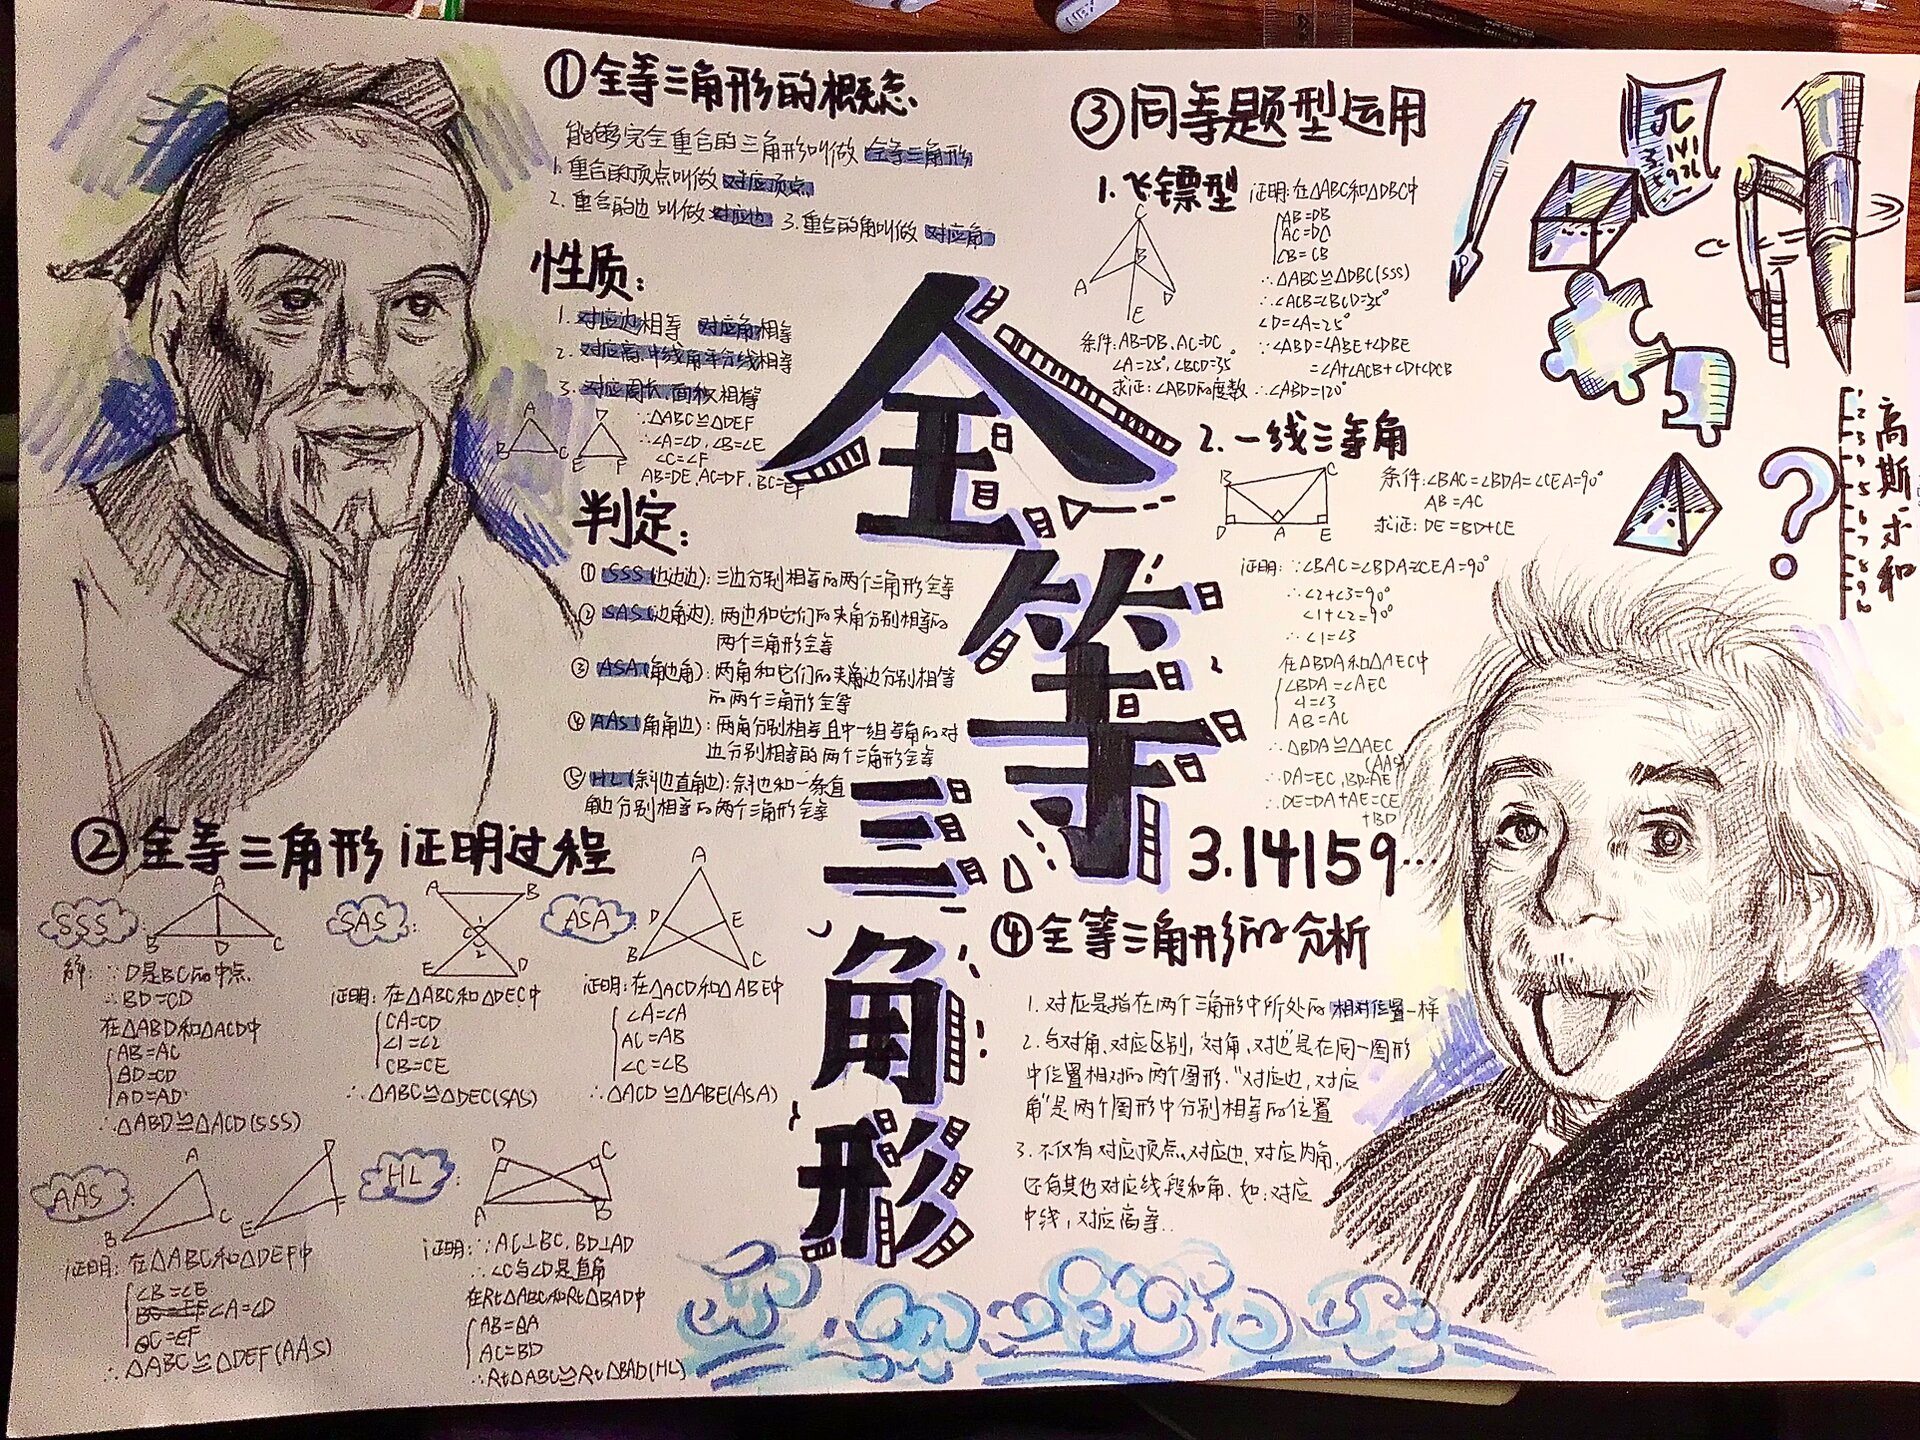 ①全等三角形的概念
能够完全重合的三角形叫做 全等三角形
1.重合的顶点叫做 对应顶点
2.重合的边叫做 对应边 3.重合的角叫做 对应角
性质:
1.对应边相等 对应角相等
2.对应高.中线角平分线相等
3.对应周长.面积相等
A D
B C E F
∵△ABC≌△DEF
∴∠A=∠D,∠B=∠E
∠C=∠F
AB=DE,AC=DF,BC=EF
判定:
①SSS(边边边):三边分别相等的两个三角形全等
②SAS(边角边):两边和它们的夹角分别相等的
两个三角形全等
③ASA(角边角):两角和它们的夹角边分别相等
的两个三角形全等
④AAS(角角边):两角分别相等且中一组等角的对
边分别相等的两个三角形全等
⑤HL(斜边直角边):斜边和一条直
角边分别相等的两个三角形全等
②全等三角形证明过程
SSS:
A
B D C
解:∵D是BC的中点
∴BD=CD
在△ABD和△ACD中
AB=AC
BD=CD
AD=AD
∴△ABD≌△ACD(SSS)
SAS:
A B
1
C
2
E D
证明:在△ABC和△DEC中
CA=CD
∠1=∠2
CB=CE
∴△ABC≌△DEC(SAS)
ASA:
A
D E
B C
证明:在△ACD和△ABE中
∠A=∠A
AC=AB
∠C=∠B
∴△ACD≌△ABE(ASA)
AAS:
A
B C
D
E F
证明:在△ABC和△DEF中
∠B=∠E
BC=EF ∠A=∠D
∴△ABC≌△DEF(AAS)
HL:
D C
A B
证明:∵AC⊥BC,BD⊥AD
∴∠C与∠D是直角
在Rt△ABC和Rt△BAD中
AB=BA
AC=BD
∴Rt△ABC≌Rt△BAD(HL)
全等三角形
③同等题型运用
1.飞镖型
C
B
A D
E
条件:AB=DB,AC=DC
∠A=25°,∠BCD=35°
求证:∠ABD的度数
证明:在△ABC和△DBC中
AB=DB
CB=CB
∴△ABC≌△DBC(SSS)
∴∠ACB=∠BCD=35°
∠D=∠A=25°
∵∠ABD=∠ABE+∠DBE
=∠A+∠ACB+∠D+∠DCB
∴∠ABD=120°
2.一线三等角
B C
D A E
条件:∠BAC=∠BDA=∠CEA=90°
AB=AC
求证:DE=BD+CE
证明:∵∠BAC=∠BDA=∠CEA=90°
∴∠2+∠3=90°
∠1+∠2=90°
∴∠1=∠3
在△BDA和△AEC中
∠BDA=∠AEC
∠1=∠3
AB=AC
∴△BDA≌△AEC
(AAS)
∴DA=EC,BD=AE
∴DE=DA+AE=CE
+BD
3.14159…
④全等三角形的分析
1.对应是指在两个三角形中所处的相对位置一样
2.与对角、对应区别,"对角、对边"是在同一图形
中位置相对的两个图形."对应边,对应
角"是两个图形中分别相等的位置
3.不仅有对应顶点、对应边、对应内角,
还有其他对应线段和角.如:对应
中线,对应高等..
π
3.141
高斯求和
?